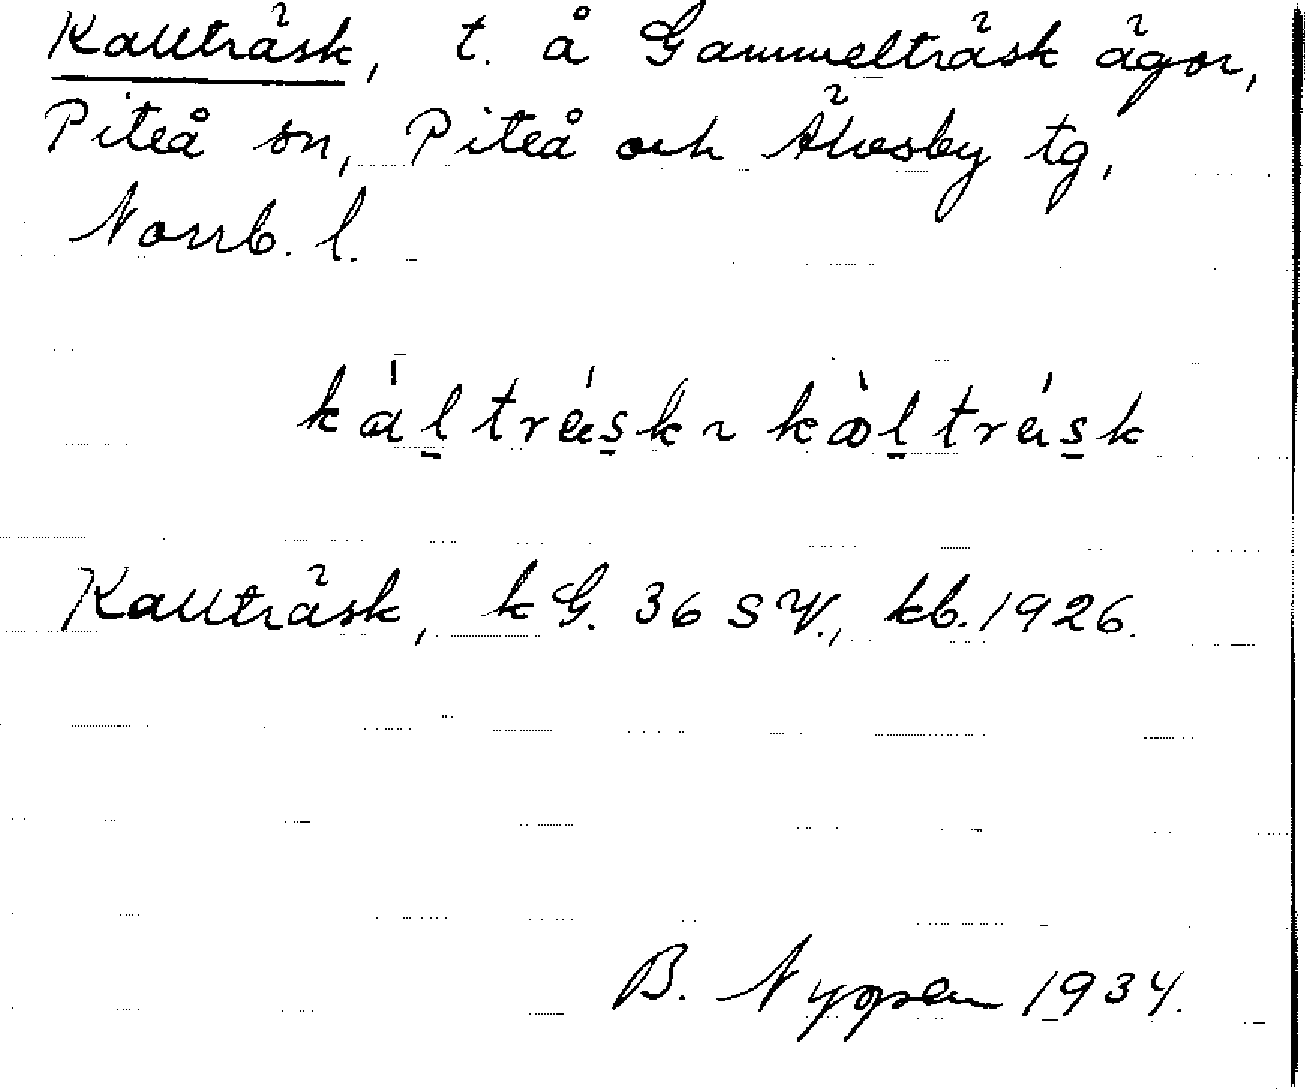 Kallträsk, t. å Gammelträsk ägor,
Piteå sn, Piteå och Älvsby tg,
Norrb. l.
kált̀rä́sk ~ kòlträ́sk
Kallträsk, kG. 36 SV., kb. 1926.
B. 1934.